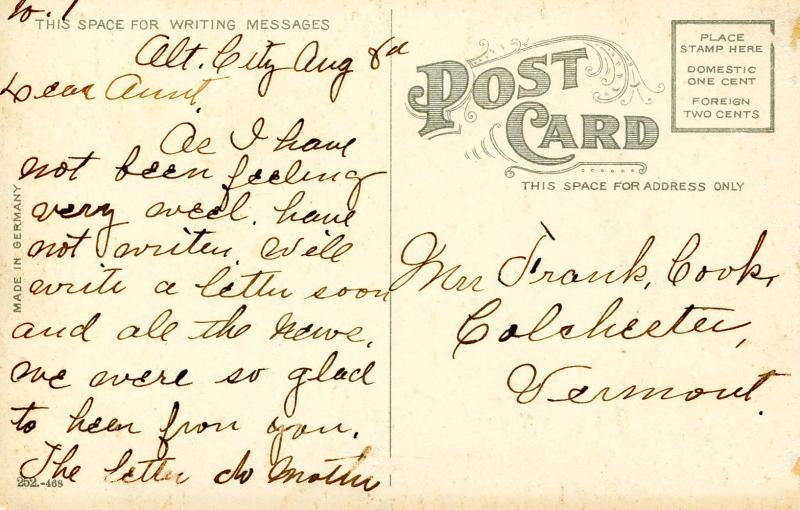 No. 1
THIS SPACE FOR WRITING MESSAGES
Alt. City Aug 8d
Dear Aunt,
As I have
not been feeling
very well, have
not writen, will
write a letter soon
and all the news,
we were so glad
to hear from you.
The letter do Mother
MADE IN GERMANY
252.-468
POST
CARD
THIS SPACE FOR ADDRESS ONLY
PLACE
STAMP HERE
DOMESTIC
ONE CENT
FOREIGN
TWO CENTS
Mrs Frank, Cook,
Colchester,
Vermont.